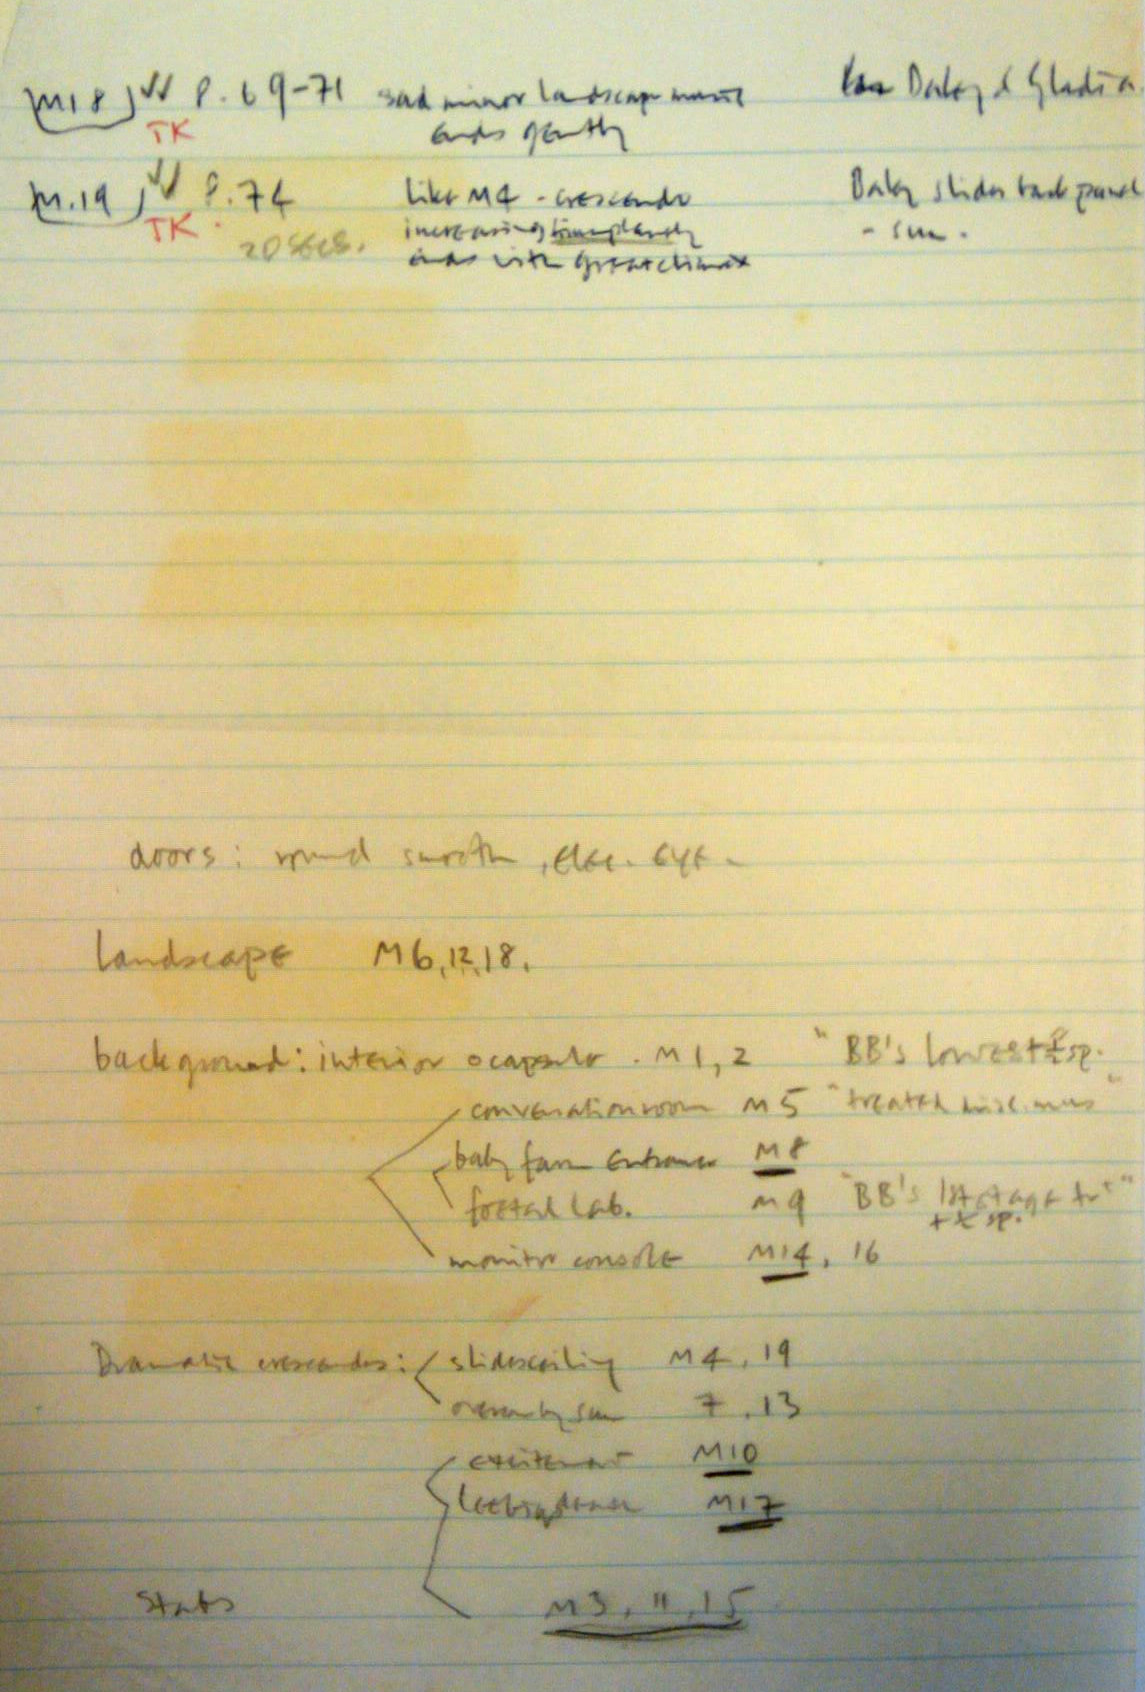 M18 P. 69-71 sad minor landscape music Baley & Gladia
TK ends gently
M.19 P. 74 Like M4 - crescendo Baley slides back panel
TK. increasing - sun.
20 secs. ends with great climax
doors: sound smooth, elec. eye -
landscape M6, 12, 18.
background: interior M1, 2 "BB's lowest sp.
conversation room M5 "treated misc. mus"
baby farm entrance M8
foetal lab. M9 "BB's 1st stage tr"
+ sp.
monitor console M14, 16
Dramatic crescendos: slides ceiling M4, 19
sun 7, 13
excitement M10
M17
Stabs M3, 11, 15